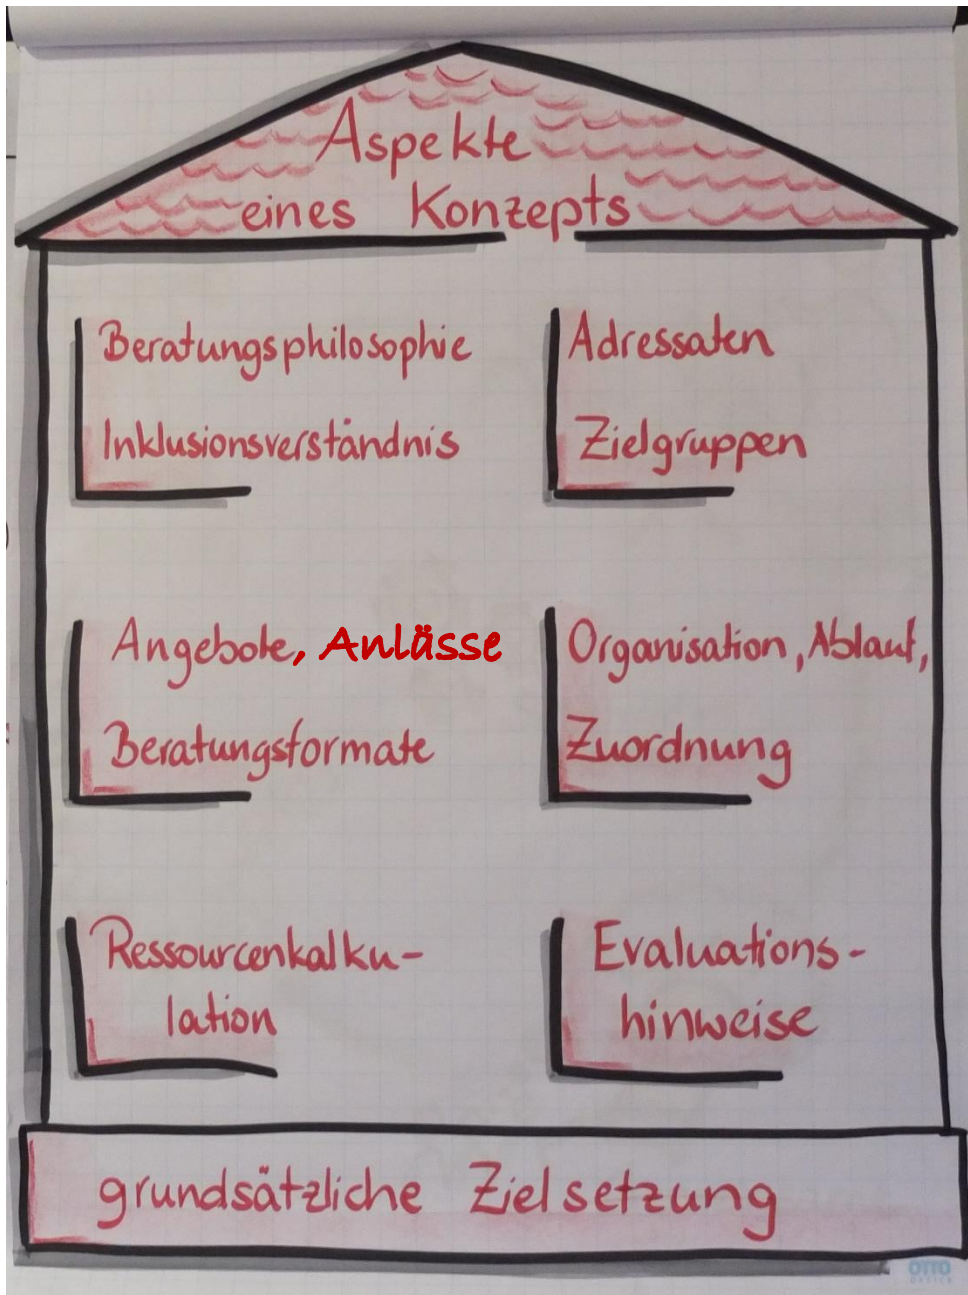 Aspekte
eines Konzepts
Beratungsphilosophie
Inklusionsverständnis
Adressaten
Zielgruppen
Angebote, Anlässe
Beratungsformate
Organisation, Ablauf,
Zuordnung
Ressourcenkalku-
lation
Evaluations-
hinweise
grundsätzliche Zielsetzung
OTTO
OFFICE